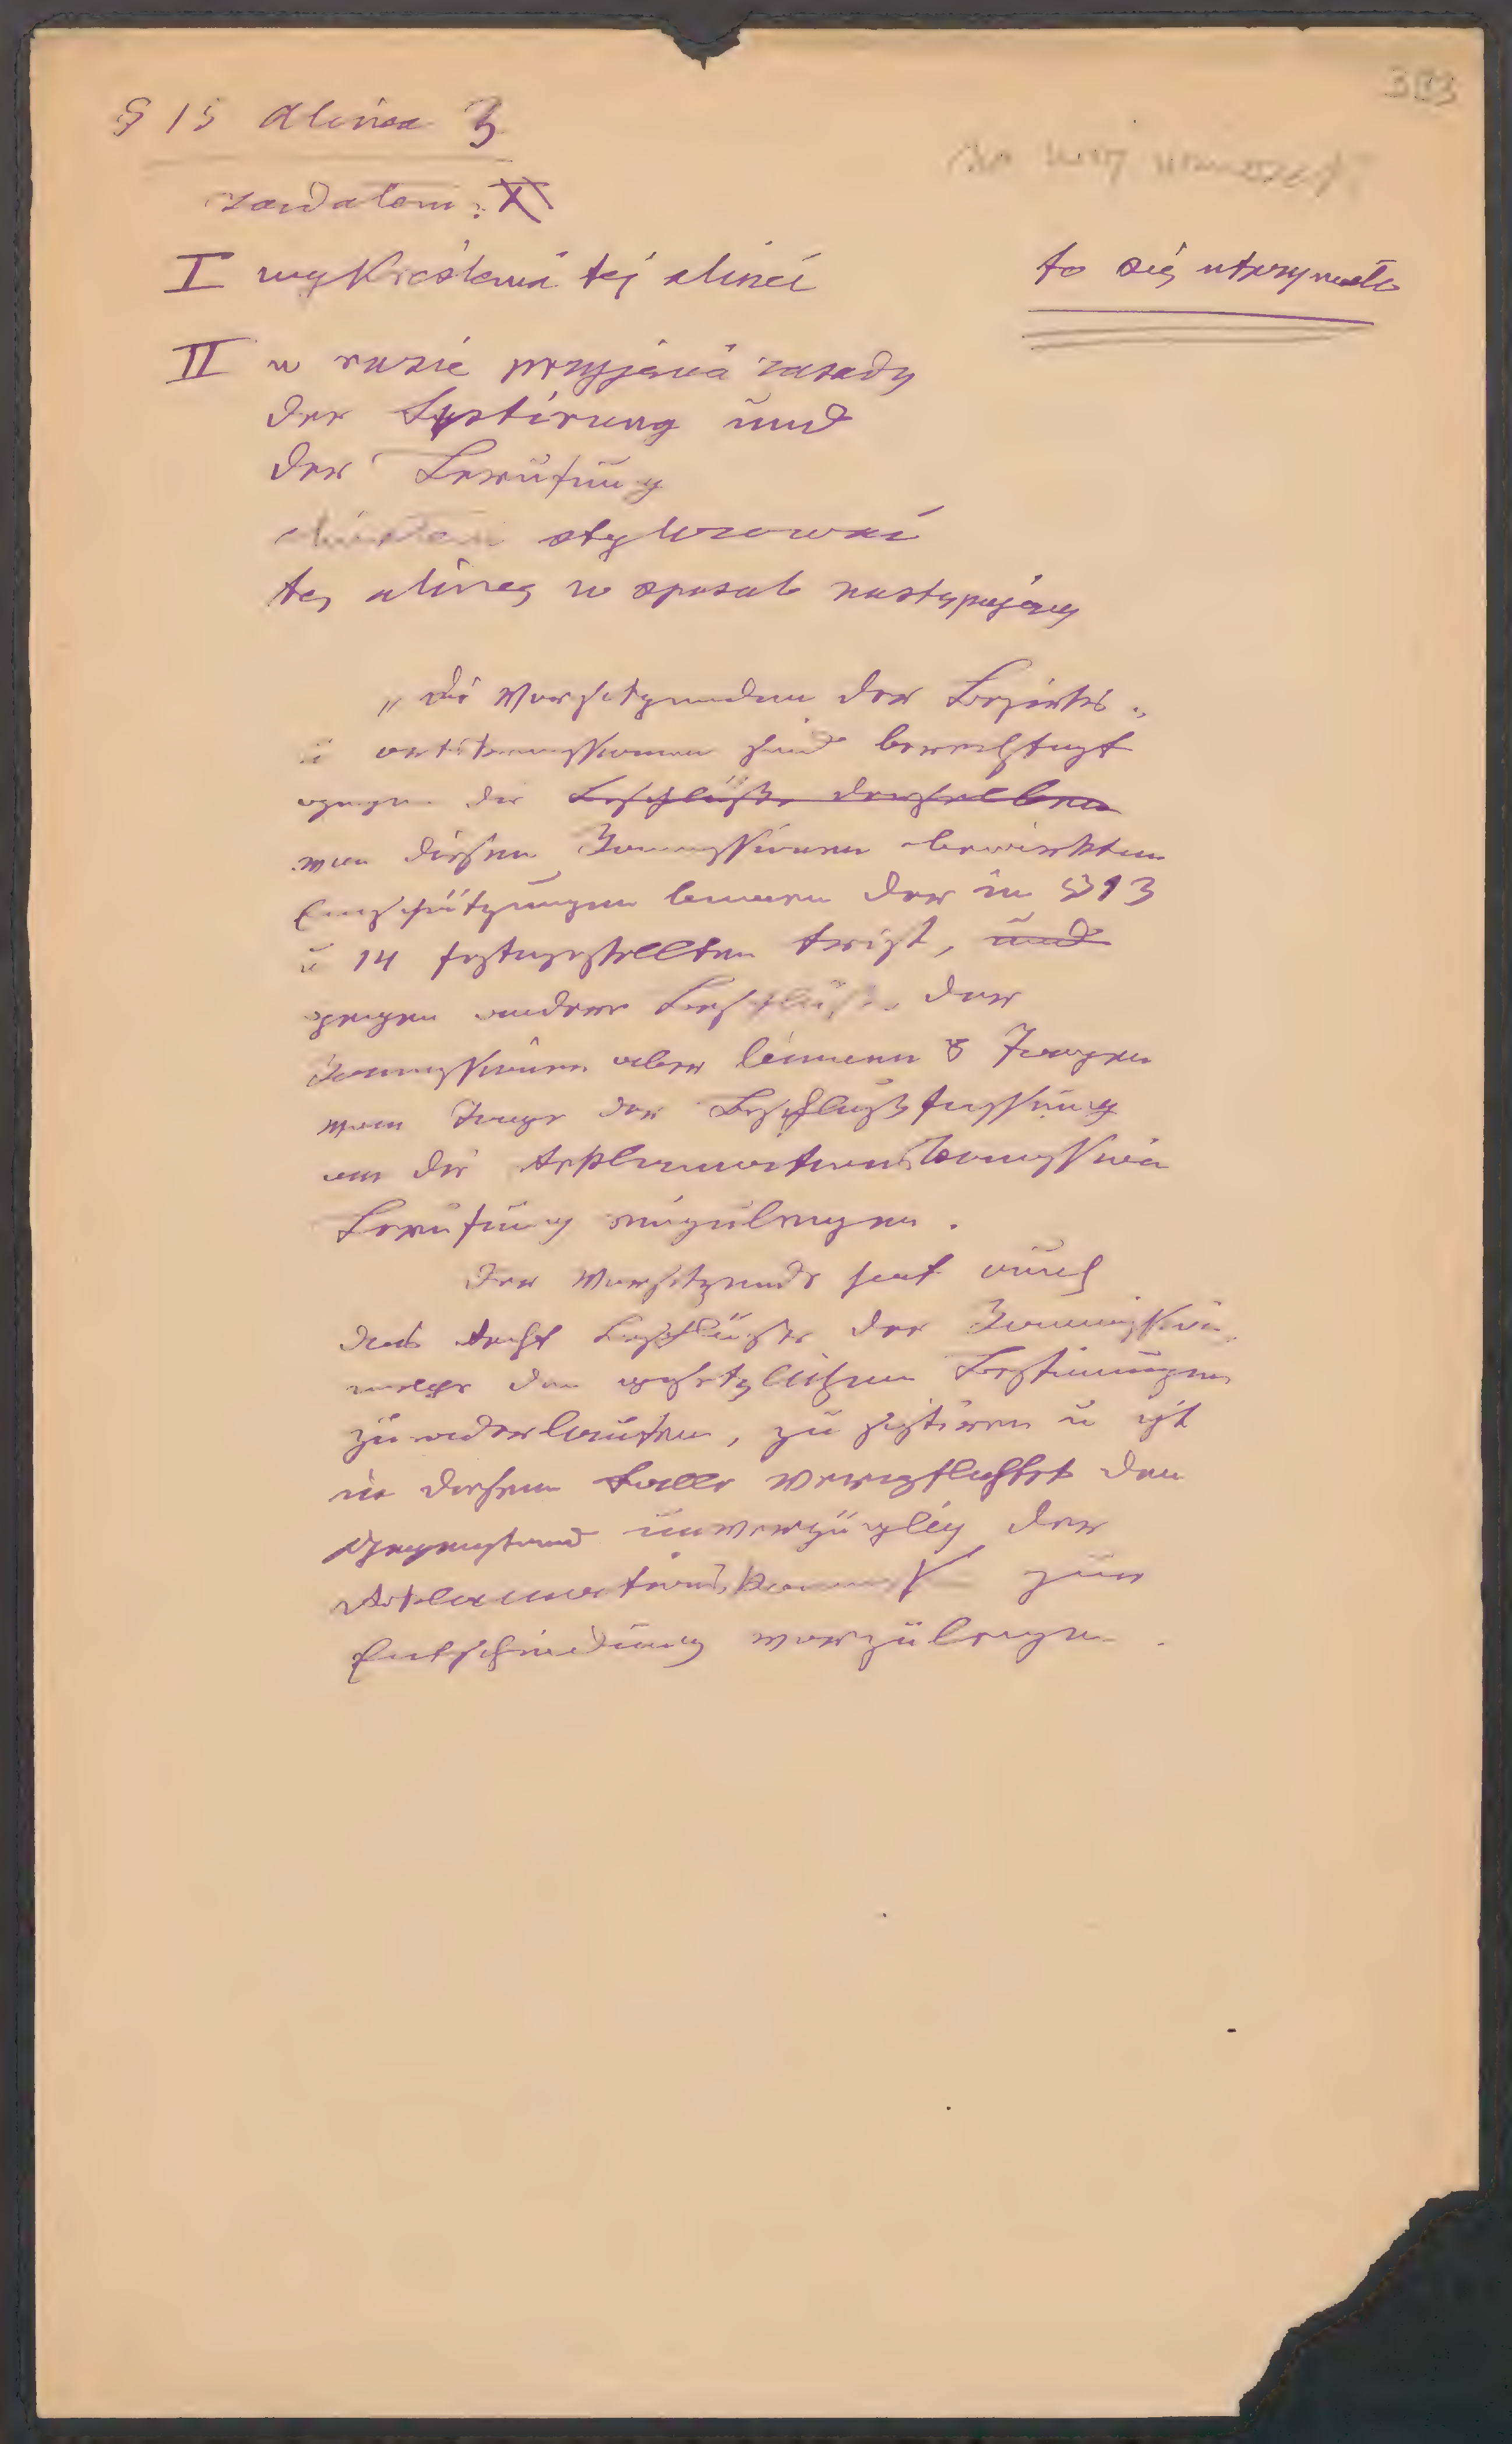 393
§ 15 Alinea 3
żądałem:
I wykreślenia tej alinei
to się utrzymało
II w razie przyjęcia zasady
der Systirung und
der Berufung
stylizować
tę alineę w sposób następujący
„Die Vorsitzenden der Bezirks-
u Ortskommissionen sind berechtigt
gegen die Beschlüsse derselben
von diesen Kommissionen bewirkten
Einschätzungen binnen der in § 13
u 14 festgestellten Frist, und
gegen andere Beschlüsse der
Kommissionen aber binnen 8 Tagen
vom Tage der Beschlußfassung
an die Reklamationskommission
Berufung einzulegen.
Der Vorsitzende hat auch
das Recht Beschlüsse der Kommission,
welche den gesetzlichen Bestimmungen
zuwiderlaufen, zu sistiren u ist
in diesem Falle verpflichtet den
Gegenstand unverzüglich der
Reklamationskommiss zur
Entscheidung vorzulegen.